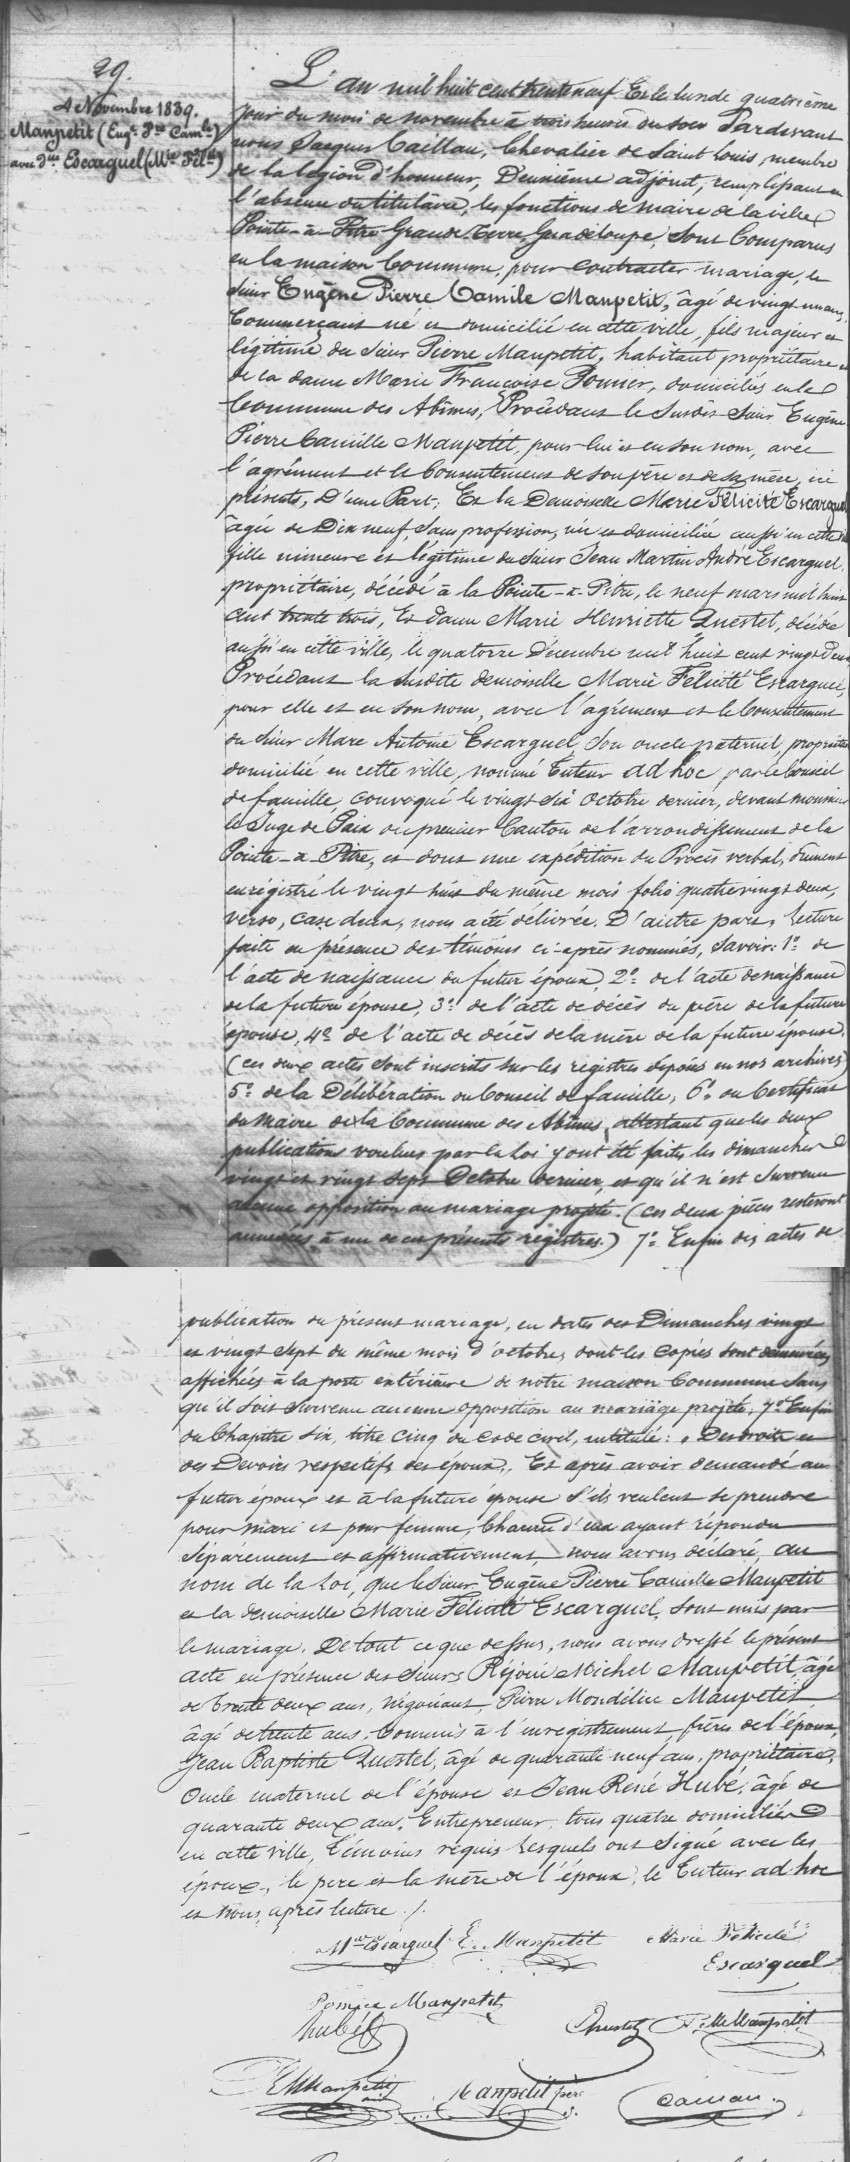 29.
4 Novembre 1839.
Maupetit (Eug.e P.re Cam.le)
avec d.lle Escarguel (M.ie Fél.té)
L'an mil huit cent trente neuf Et le lundi quatrième
jour du mois de novembre à trois heures du soir Pardevant
nous Jacques Caillau, Chevalier de Saint Louis, membre
de la légion d'honneur, Deuxième adjoint, remplissant en
l'absence du titulaire, les fonctions de maire de la ville
Pointe-à-Pitre Grande-terre, Guadeloupe, Sont Comparus
en la maison Commune, pour contracter mariage, le
Sieur Eugène Pierre Camile Maupetit, âgé de vingt un ans,
Commerçant né et domicilié en cette ville, fils majeur et
légitime du Sieur Pierre Maupetit, habitant propriétaire et
de la dame Marie Francoise Bonnier, domiciliés en la
Commune des Abîmes, Procédant le Susdit Sieur Eugène
Pierre Camille Maupetit, pour lui et en son nom, avec
l'agrément et le Consentement de son père et de sa mère, ici
présents, D'une Part; Et la Demoiselle Marie Félicité Escarguel
âgée de Dix neuf, Sans profession, née et domiciliée aussi en cette
fille mineure et légitime du Sieur Jean Martin André Escarguel,
propriétaire, décédé à la Pointe-à-Pitre, le neuf mars mil huit
cent trente trois, Et dame Marie Henriette Questel, décédée
aussi en cette ville, le quatorze Décembre mil huit cent vingt deux
Procédant la susdite demoiselle Marie Félicité Escarguel,
pour elle et en son nom, avec l'agrément et le Consentement
du Sieur Marc Antoine Escarguel, Son oncle paternel, propriétaire
domicilié en cette ville, nommé Tuteur ad hoc, par le Conseil
de famille, convoqué le vingt six Octobre dernier, devant monsieur
le Juge de Paix du premier Canton de l'arrondissement de la
Pointe-à-Pitre, et dont une expédition du Procès verbal, dûment
enrégistré le vingt huit du même mois folio quatrevingt deux,
verso, case deux, nous a été délivrée. D'autre part, Lecture
faite en présence des témoins ci-après nommés, Savoir: 1.º de
l'acte de naissance du futur époux, 2.º de l'acte de naissance
de la future épouse, 3.º de l'acte de décès du père de la future
épouse, 4.º de l'acte de décès de la mère de la future épouse,
(ces deux actes sont inscrits sur les régistres déposés en nos archives)
5.º de la Délibération du Conseil de famille, 6.º du Certificat
du Maire de la Commune des Abîmes, attestant que les deux
publications voulues par la loi y ont été faites les dimanches
vingt et vingt sept Octobre dernier, et qu'il n'est survenu
aucune opposition au mariage projeté. (ces deux pièces resteront
annexées à un de ces présents régistres.) 7.º Enfin des actes de
publication du présent mariage, en dates des Dimanches vingt
et vingt Sept du même mois d'octobre, dont les copies sont demeurées
affichées à la porte extérieure de notre maison Commune Sans
qu'il soit survenu aucune opposition au mariage projeté, 7.º Enfin
du Chapitre Six, titre Cinq du Code civil, intitulé: " Des droits et
des Devoirs respectifs des époux,, Et après avoir demandé au
futur époux et à la future épouse S'ils veulent se prendre
pour mari et pour femme, Chacun d'eux ayant répondu
Séparément et affirmativement, nous avons déclaré, au
nom de la Loi, que le Sieur Eugène Pierre Camille Maupetit
et la demoiselle Marie Félicité Escarguel, Sont unis par
le mariage. De tout ce que dessus, nous avons dressé le présent
acte en présence des Sieurs Réjoui Michel Maupetit, âgé
de trente deux ans, négociant, Pierre Maupetit,
âgé de trente ans, Commis à l'enregistrement, frères de l'époux,
Jean Baptiste Questel, âgé de quarante neuf ans, propriétaire,
Oncle maternel de l'épouse et Jean René Hubé, âgé de
quarante deux ans, Entrepreneur, tous quatre domiciliés
en cette ville, Témoins requis Lesquels ont Signé avec les
époux, le père et la mère de l'époux, le Tuteur ad hoc
et Nous, après lecture ./.
M.c Escarguel E. Maupetit Marie Félicité
Escarguel
Maupetit
Hubé Questel Maupetit
Maupetit Maupetit père Caillau